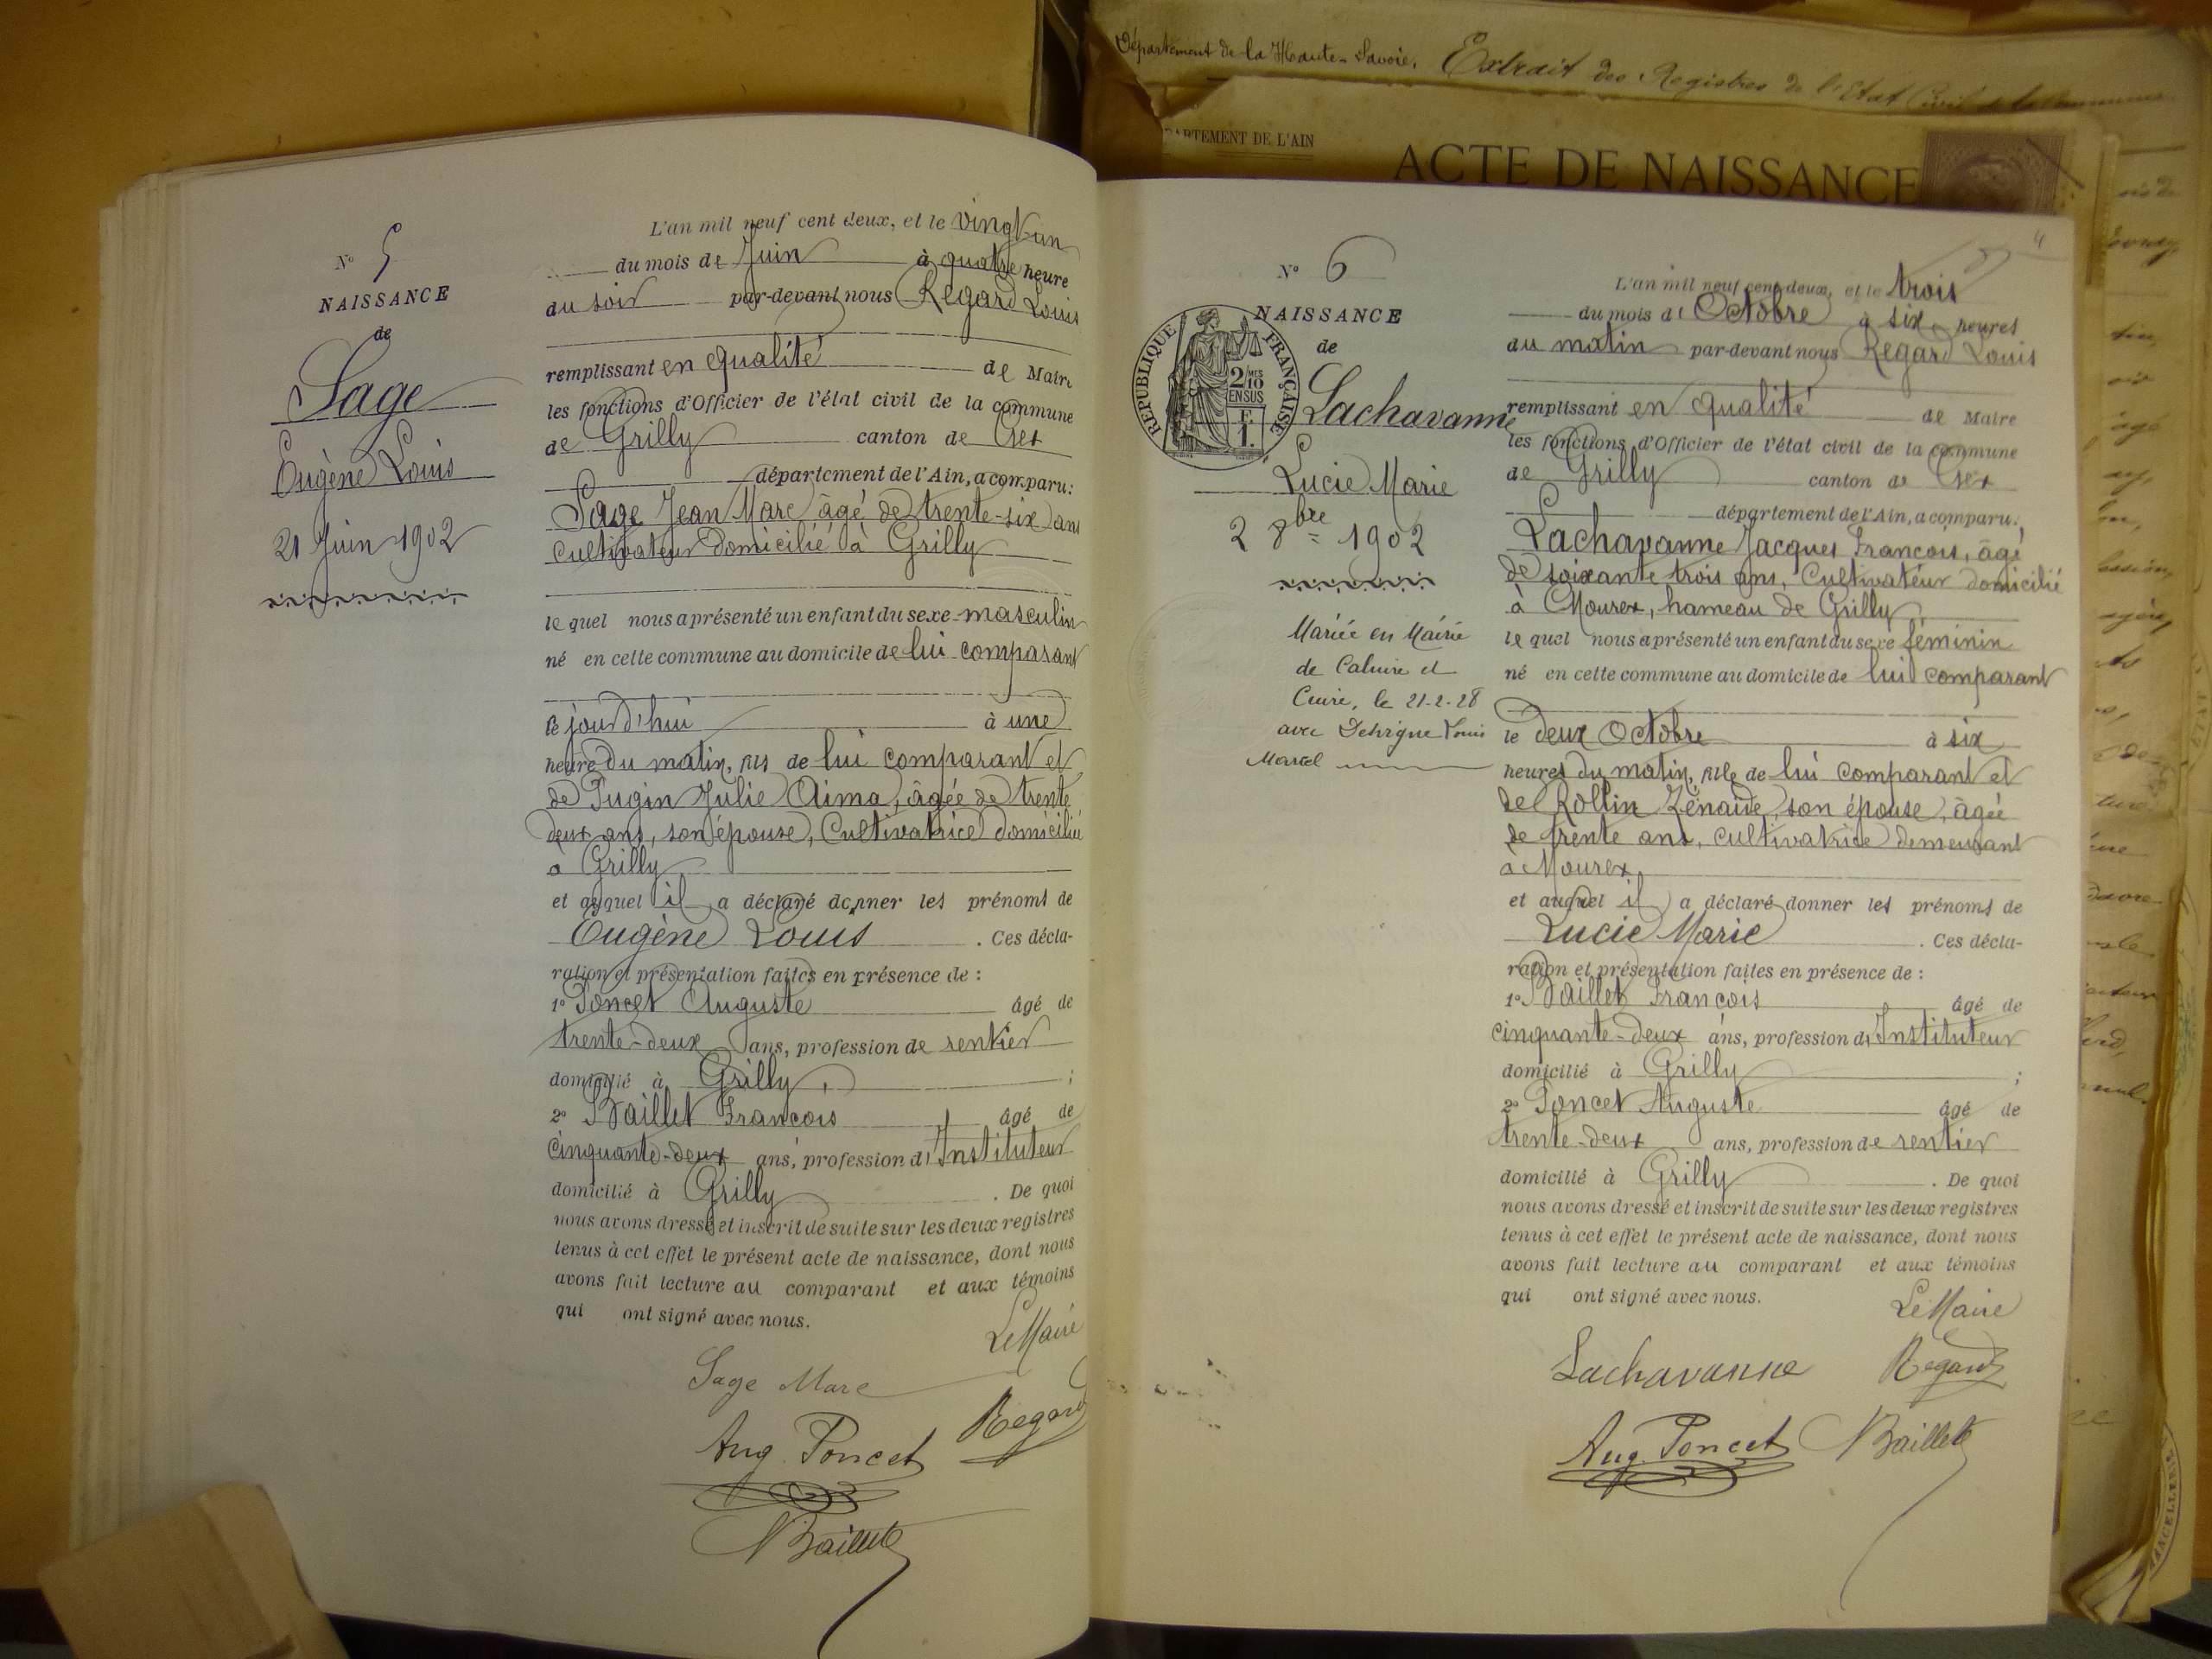 Département de la Haute-Savoie. Extrait des Registres de l'Etat Civil de la Commune
PARTEMENT DE L'AIN
ACTE DE NAISSANCE
N° 5
NAISSANCE
de
Sage
Eugène Louis
21 Juin 1902
L'an mil neuf cent deux, et le vingt-un
du mois de Juin à quatre heure
du soir par-devant nous Regard Louis
remplissant en qualité de Maire
les fonctions d'Officier de l'état civil de la commune
de Grilly canton de Gex
département de l'Ain, a comparu:
Sage Jean Marc âgé de trente-six ans
cultivateur domicilié à Grilly
le quel nous a présenté un enfant du sexe masculin
né en cette commune au domicile de lui comparant
le jourd'hui à une
heure du matin, fils de lui comparant et
de Pugin Julie Aima, âgée de trente
deux ans, son épouse, Cultivatrice domiciliée
à Grilly
et auquel il a déclaré donner les prénoms de
Eugène Louis . Ces décla-
ration et présentation faites en présence de :
1° Poncet Auguste âgé de
trente-deux ans, profession de rentier
domicilié à Grilly ;
2° Baillet François âgé de
cinquante-deux ans, profession d'Instituteur
domicilié à Grilly . De quoi
nous avons dressé et inscrit de suite sur les deux registres
tenus à cet effet le présent acte de naissance, dont nous
avons fait lecture au comparant et aux témoins
qui ont signé avec nous.
Le Maire
Sage Marc
Regard
Aug. Poncet
Baillet
4
N° 6
NAISSANCE
de
REPUBLIQUE FRANÇAISE
2/10 MES
EN SUS
F.
1.
Lachavanne
Lucie Marie
2 8bre 1902
Mariée en Mairie
de Caluire et
Cuire, le 21-2-28
avec Louis
Marcel
L'an mil neuf cent deux, et le trois
du mois d'Octobre à six heures
du matin par-devant nous Regard Louis
remplissant en qualité de Maire
les fonctions d'Officier de l'état civil de la commune
de Grilly canton de Gex
département de l'Ain, a comparu:
Lachavanne Jacques François, âgé
de soixante trois ans, Cultivateur domicilié
à Mourex, hameau de Grilly
le quel nous a présenté un enfant du sexe féminin
né en cette commune au domicile de lui comparant
le deux Octobre à six
heures du matin, fille de lui comparant et
de Rollin Zénaïde, son épouse, âgée
de trente ans, cultivatrice demeurant
à Mourex
et auquel il a déclaré donner les prénoms de
Lucie Marie . Ces décla-
ration et présentation faites en présence de :
1° Baillet François âgé de
cinquante-deux ans, profession d'Instituteur
domicilié à Grilly ;
2° Poncet Auguste âgé de
trente-deux ans, profession de rentier
domicilié à Grilly . De quoi
nous avons dressé et inscrit de suite sur les deux registres
tenus à cet effet le présent acte de naissance, dont nous
avons fait lecture au comparant et aux témoins
qui ont signé avec nous.
Le Maire
Lachavanne Regard
Aug. Poncet Baillet